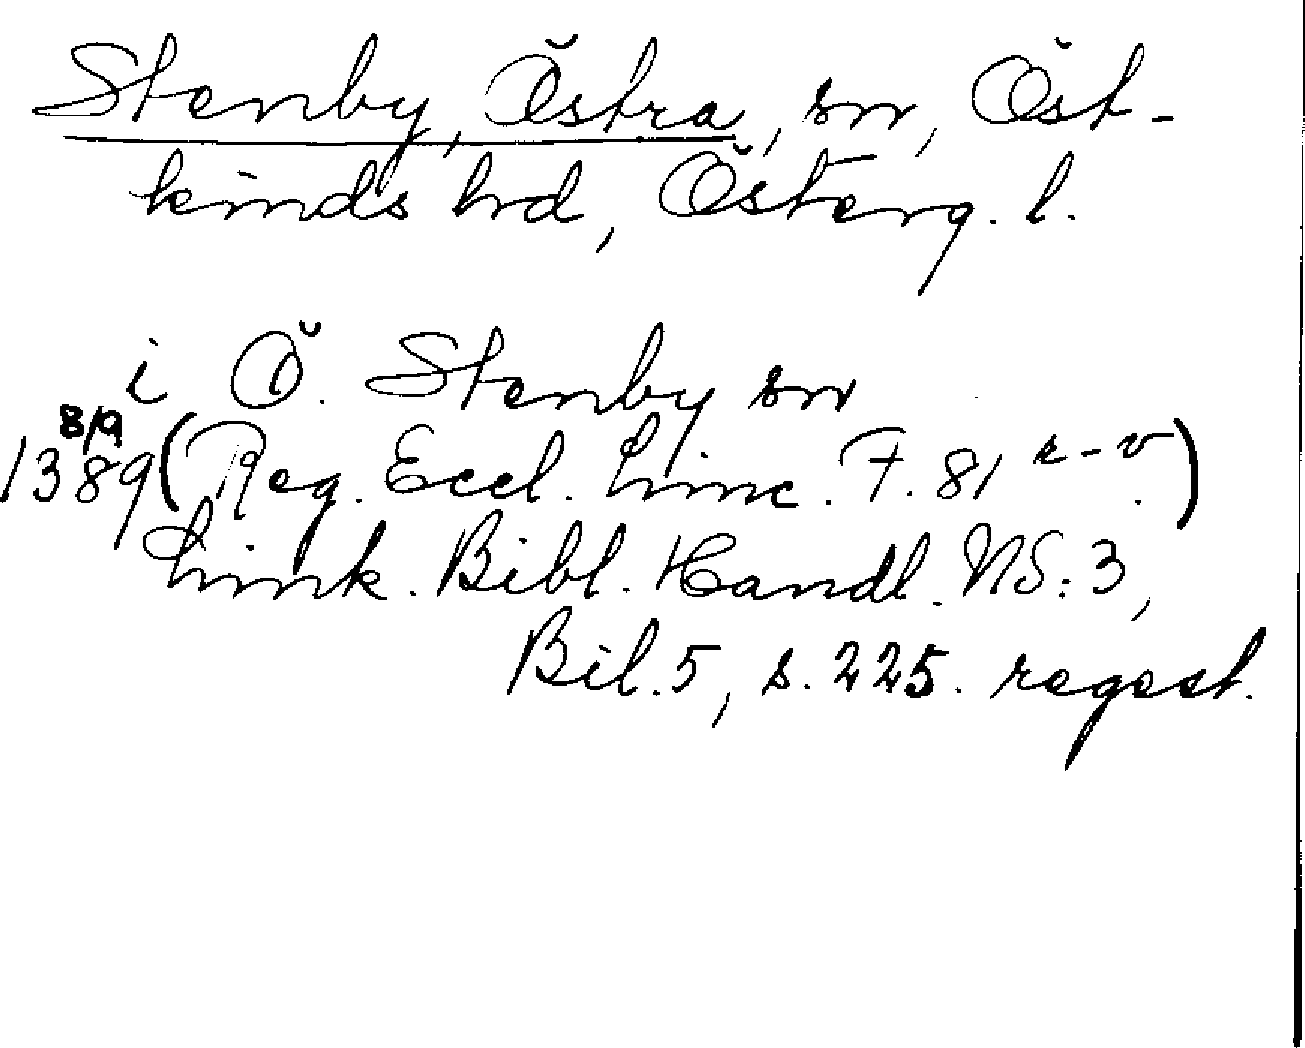 Stenby, Östra, sn, Öst-
kinds hd, Österg. l.
i Ö. Stenby sn
8/9
1389 (Reg. Eccl. Linc. F. 81 r-v.)
Link. Bibl. Handl. NS: 3,
Bil. 5, s. 225. regest.